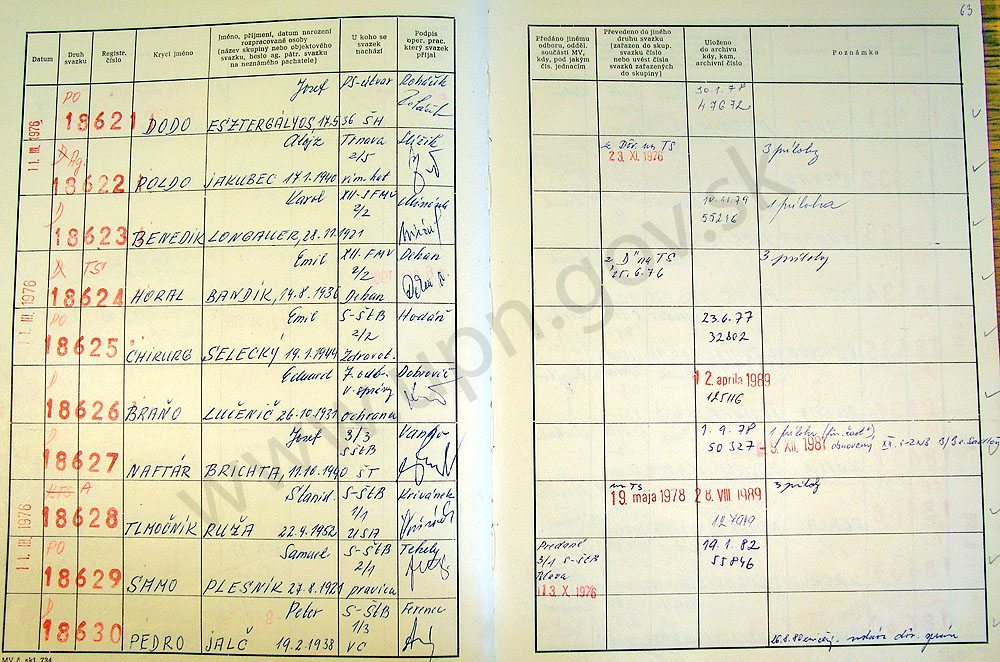 63
Datum
Druh svazku
Registr. číslo
Krycí jméno
Jméno, příjmení, datum narození
rozpracované osoby
(název skupiny nebo objektového
svazku, heslo ag. pátr. svazku
na neznámého pachatele)
U koho se
svazek
nachází
Podpis
oper. prac.
který svazek
přijal
Předáno jinému
odboru, odděl.
součásti MV,
kdy, pod jakým
čís. jednacím
Převedeno do jiného
druhu svazku
(zařazen do skup.
svazku číslo
nebo uvést čísla
svazků zařazených
do skupiny)
Uloženo
do archivu
kdy, kam,
archivní číslo
Poznámka
11. III. 1976
PO
Jozef
18621 DODO ESZTERGÁLYOS 17.5.36 ŠH
30.1.78
47672
Ag.
Alojz Trnava
2/5
18622 POLDO JAKUBEC 17.1.1940
TS
23. XI. 1976
3 prílohy
D
Karol XII-SFMV
2/2
18623 BENEDIK LONGAUER, 28.11.1921
10.01.79
55216
1 príloha
D TS
Emil XII. FMV Dehan
2/2
18624 HORAL BANDÍK, 14.8.1936 Dehan
z "D" na TS
25.6.76
3 prílohy
11. III. 1976
PO
Emil S-ŠtB Hodáň
2/2
18625 CHIRURG SELECKÝ 19.1.1944 Zdravot.
23.6.77
32802
D
Eduard 7. odb. Dobrovič
V. správy
18626 BRAŇO LUČENIČ 26.10.1931 ochrana
12. apríla 1989
125116
Jozef 3/3
S ŠtB
18627 NAFTÁR BRICHTA, 11.10.1940 ŠT
1. 9. 78
50327
- 9. XII. 1981
1 príloha
obnovený
11. III. 1976
A
Stanid. S-ŠtB Krivánek
1/1
18628 TLMOČNÍK RUŽA 22.9.1952 USA
na TS
19. mája 1978
28. VIII 1989
3 príloh
PO
Samuel S-ŠtB Tekely
2/1
18629 SAMO PLESNÍK 27.8.1921 pravica
Predané
3/1 S-ŠtB
3. X. 1976
19.1.82
55846
D
Peter S-ŠtB Ferenc
1/3
18630 PEDRO JALČ 19.2.1938 VC
MV č. skl. 734
www.upn.gov.sk